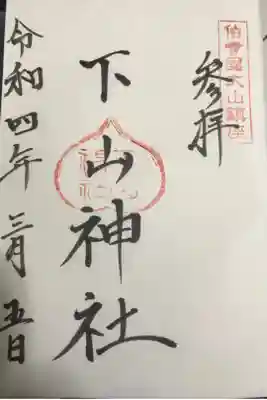 伯耆國大山鎮座
参拝
下山神社
令和四年三月五日